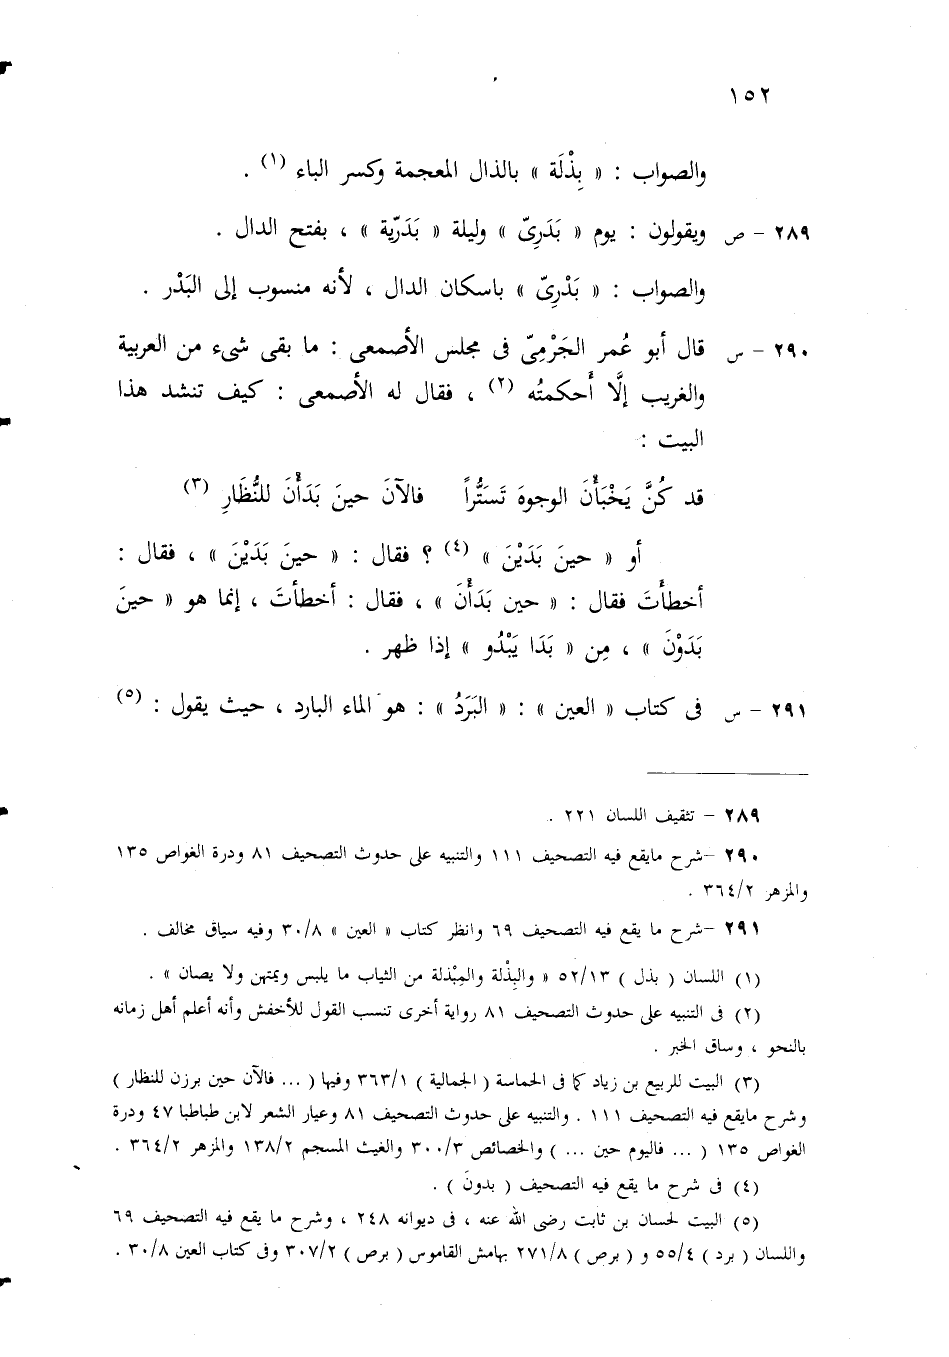 ١٥٢
والصواب : « بِذْلَة » بالذال المعجمة وكسر الباء (١) .
٢٨٩ – ص ويقولون : يوم « بَدَرِىّ » وليلة « بَدَرّية » ، بفتح الدال .
والصواب : « بَدْرِىّ » باسكان الدال ، لأنه منسوب إلى البَدْر .
٢٩٠ – س قال أبو عُمر الجَرْمِىّ فى مجلس الأصمعى : ما بقى شىء من العربية
والغريب إلَّا أَحكمتُه (٢) ، فقال له الأصمعى : كيف تنشد هذا
البيت :
قد كُنَّ يَخْبَأْنَ الوجوهَ تَسَتُّراً فالآنَ حينَ بَدَأْنَ للنُّظَارِ (٣)
أو « حينَ بَدَيْنَ » (٤) ؟ فقال : « حينَ بَدَيْنَ » ، فقال :
أخطأْتَ فقال : « حين بَدَأْنَ » ، فقال : أخطأتَ ، إنما هو « حينَ
بَدَوْنَ » ، مِن « بَدَا يَبْدُو » إذا ظهر .
٢٩١ – س فى كتاب « العين » : « البَرَدُ » : هو الماء البارد ، حيث يقول : (٥)
٢٨٩ – تثقيف اللسان ٢٢١ .
٢٩٠ –شرح مايقع فيه التصحيف ١١١ والتنبيه على حدوث التصحيف ٨١ ودرة الغواص ١٣٥
والمزهر ٣٦٤/٢ .
٢٩١ –شرح ما يقع فيه التصحيف ٦٩ وانظر كتاب « العين » ٣٠/٨ وفيه سياق مخالف .
(١) اللسان ( بذل ) ٥٢/١٣ « والبِذْلة والمِبْذلة من الثياب ما يلبس ويمتهن ولا يصان » .
(٢) فى التنبيه على حدوث التصحيف ٨١ رواية أخرى تنسب القول للأخفش وأنه أعلم أهل زمانه
بالنحو ، وساق الخبر .
(٣) البيت للربيع بن زياد كما فى الحماسة ( الجمالية ) ٣٦٣/١ وفيها ( ... فالآن حين برزن للنظار )
وشرح مايقع فيه التصحيف ١١١ . والتنبيه على حدوث التصحيف ٨١ وعيار الشعر لابن طباطبا ٤٧ ودرة
الغواص ١٣٥ ( ... فاليوم حين ... ) والخصائص ٣٠٠/٣ والغيث المسجم ١٣٨/٢ والمزهر ٣٦٤/٢ .
(٤) فى شرح ما يقع فيه التصحيف ( بدونَ ) .
(٥) البيت لحسان بن ثابت رضى الله عنه ، فى ديوانه ٢٤٨ ، وشرح ما يقع فيه التصحيف ٦٩
واللسان ( برد ) ٥٥/٤ و ( برص ) ٢٧١/٨ بهامش القاموس ( برص ) ٣٠٧/٢ وفى كتاب العين ٣٠/٨ .